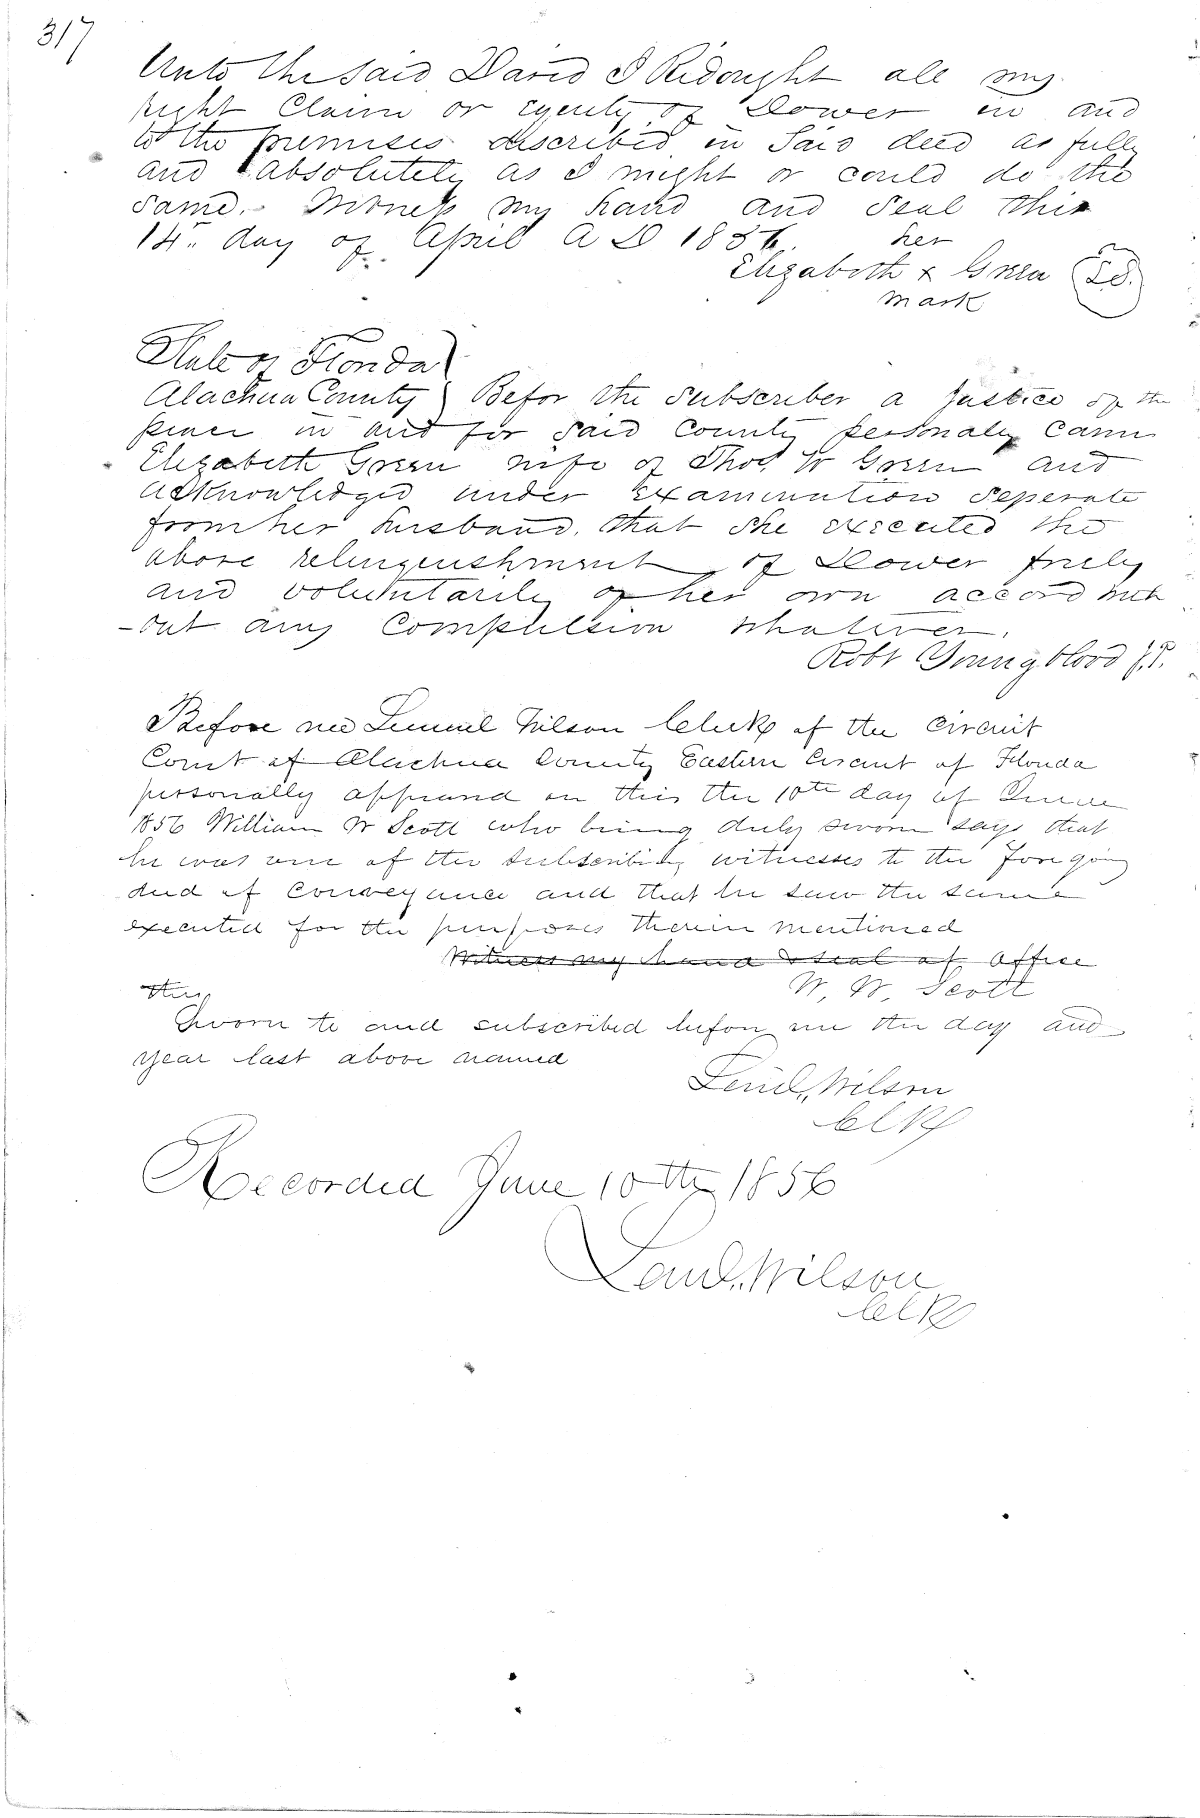 317
Unto the said David I Ridought all my
right Claim or equity of Dower in and
to the premises discribed in Said deed as fully
and absolutely as I might or could do the
same. Witness my hand and Seal this
14th day of April A D 1856. her
Elizabeth x Green L.S.
mark
State of Florida
Alachua County Befor the Subscriber a Justice of the
peace in and for said County personaly came
Elizabeth Green wife of Thos. W Green and
acknowledged under examination seperate
from her husband, that she executed the
above relinquishment of Dower freely
and voluntarily of her own accord with
-out any Compulsion whatever.
Robt Youngblood J.P.
Before me Lemuel Wilson Clerk of the Circuit
Court of Alachua County Eastern Circuit of Florida
personally appeared on this the 10th day of June
1856 William W Scott who being duly sworn says that
he was one of the subscribing witnesses to the foregoing
deed of Conveyance and that he saw the same
executed for the purposes therein mentioned
Witness my hand & seal of office
this W. W. Scott
Sworn to and subscribed before me the day and
year last above named
Leml. Wilson
Clk
Recorded June 10th 1856
Leml. Wilson
Clk